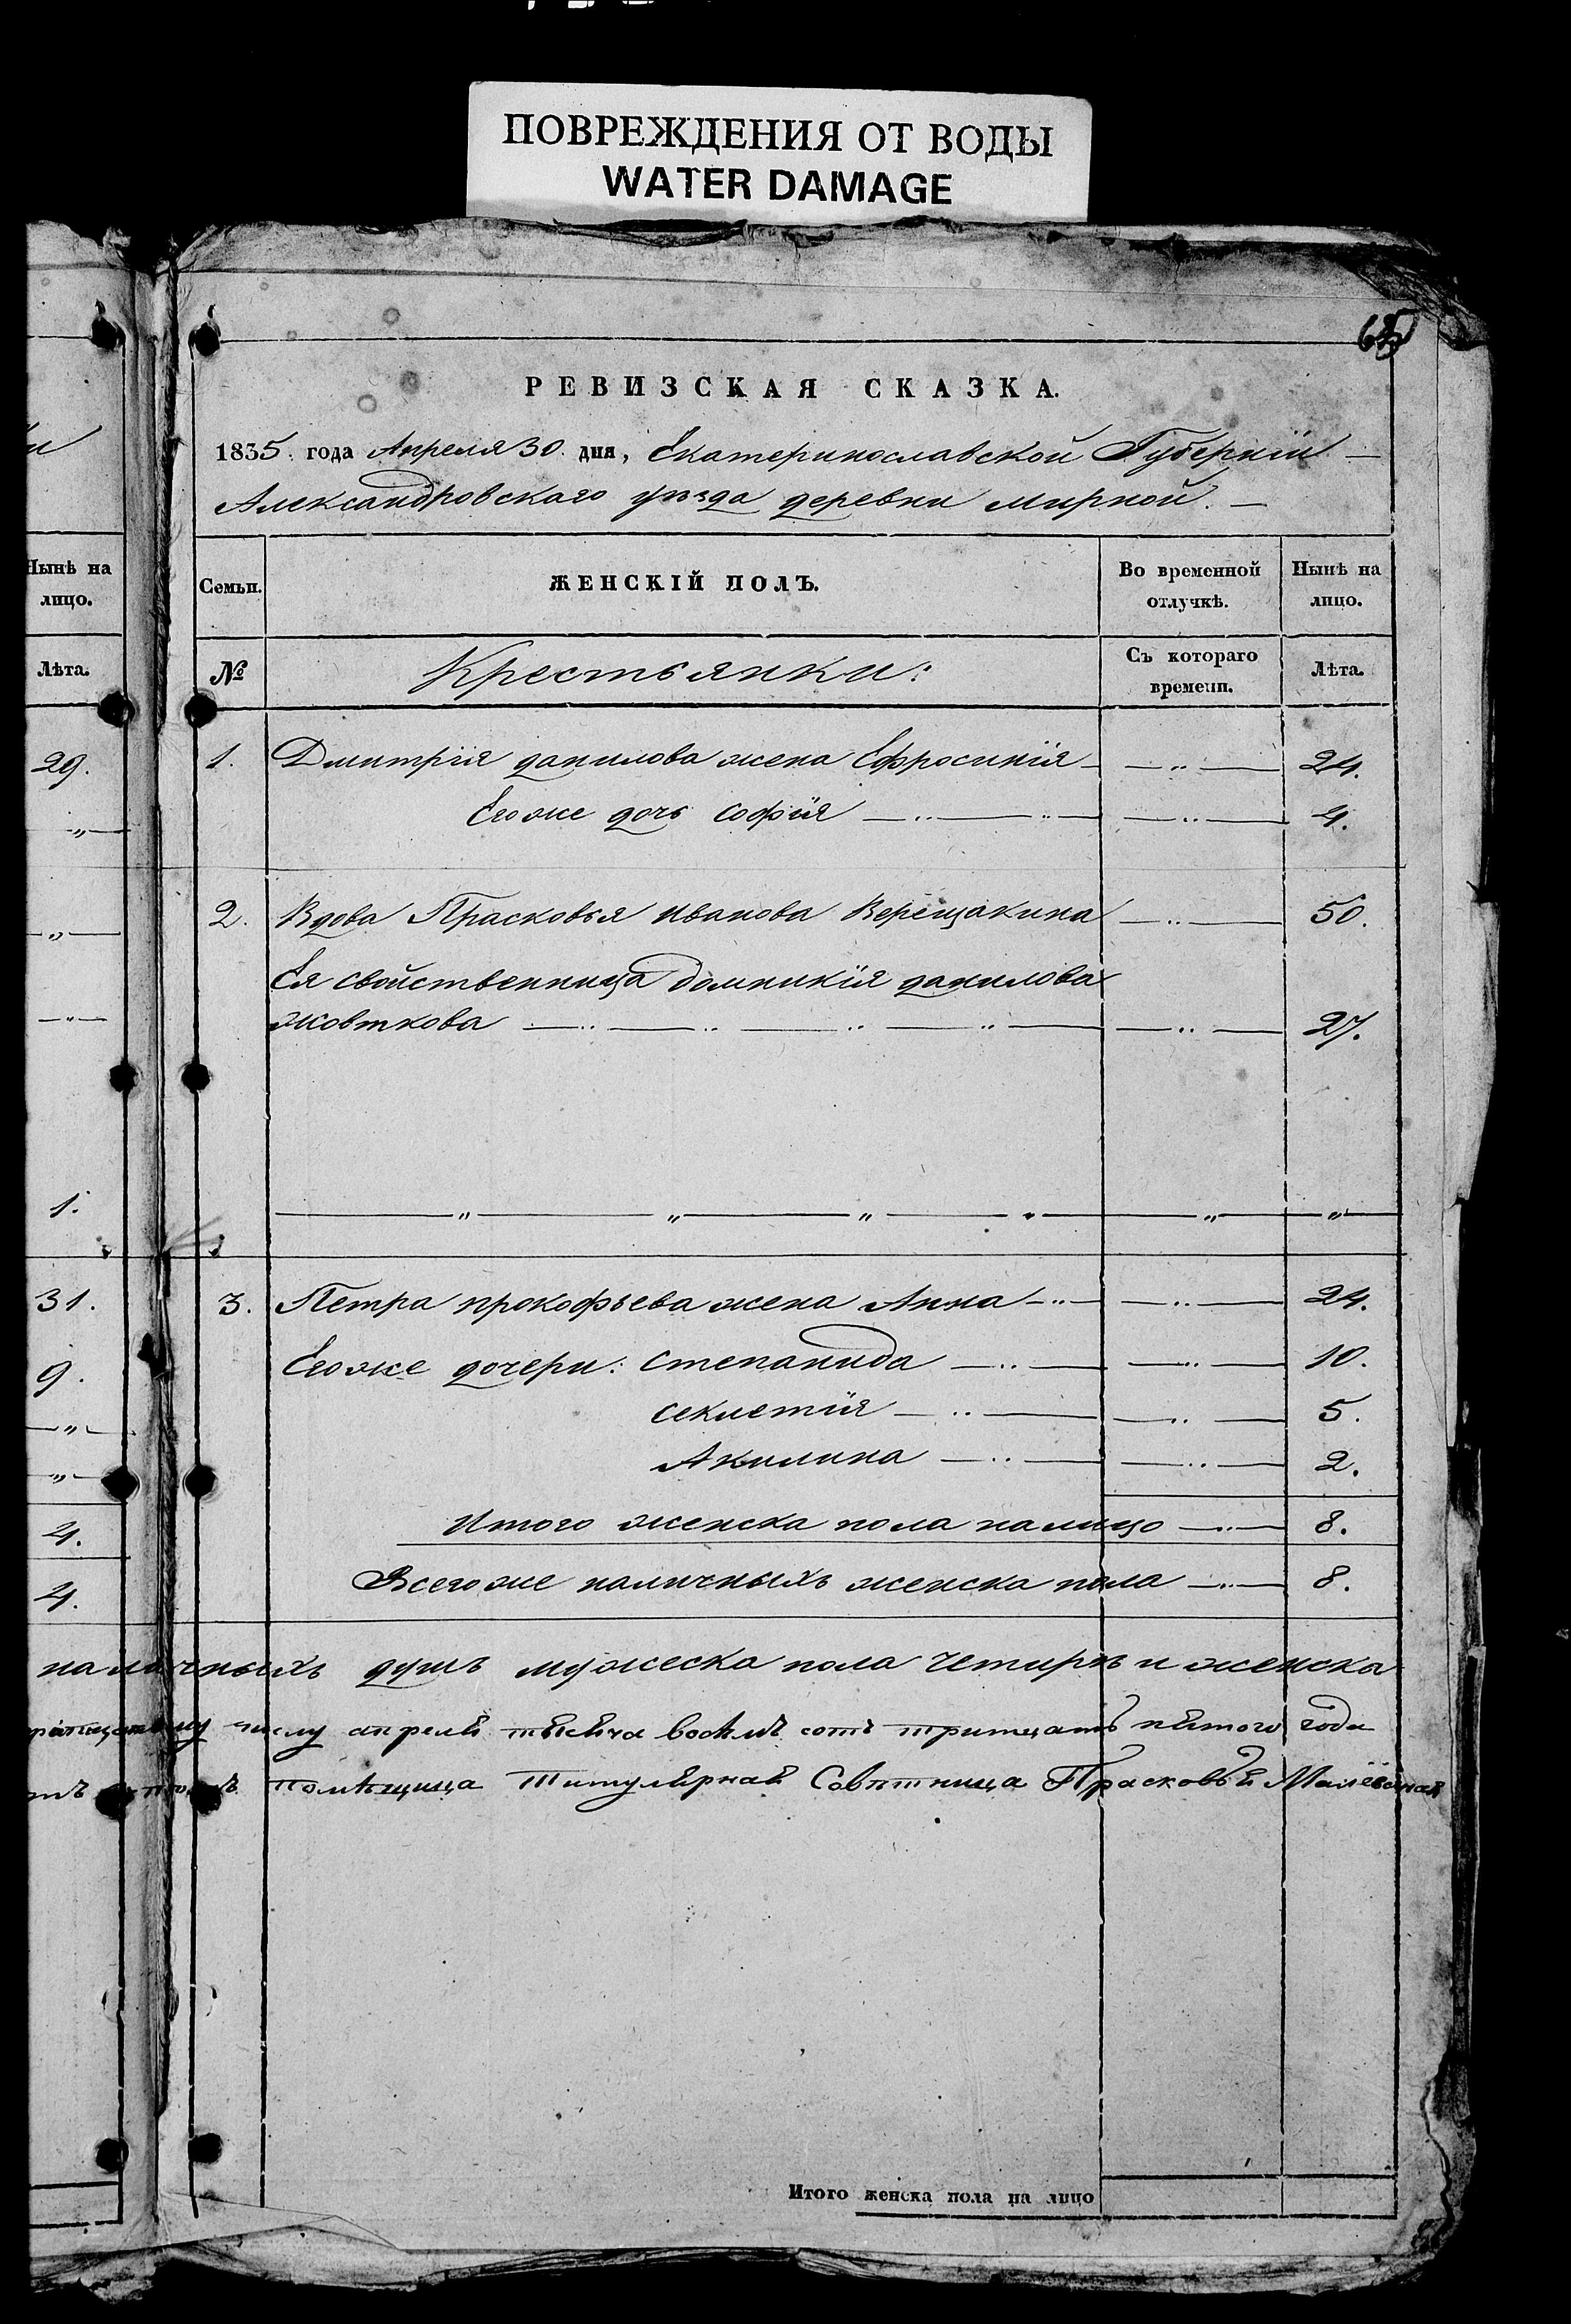 ПОВРЕЖДЕНИЯ ОТ ВОДЫ
WATER DAMAGE
РЕВИЗСКАЯ СКАЗКА.
1835. года Апреля 30. дня, Екатеринославской Губернiи
Александровскаго уѣзда деревни мирной.
Нынѣ на лицо.
Лѣта.
29.
1.
31.
9.
4.
4.
Семьи. ЖЕНСКIЙ ПОЛЪ. Во временной отлучкѣ. Нынѣ на лицо.
№ Крестьянки: Съ котораго времени. Лѣта.
1. Дмитрiя данилова жена Ефросинiя 24.
Егоже дочь софiя 4.
2. Вдова Прасковья иванова Верещакина 50.
Ея свойственница домникiя данилова
жовткова 27.
3. Петра прокофьева жена Анна 24.
Егоже дочери: степанида 10.
секлетiя 5.
Акилина 2.
Итого женска пола налицо 8.
Всегоже наличныхъ женска пола 8.
наличныхъ душъ мужеска пола четыре и женска
числу апреля тысяча восемъ сотъ тритцать пятого года
помѣщица Титулярная Совѣтница Прасковья
Итого женска пола на лицо